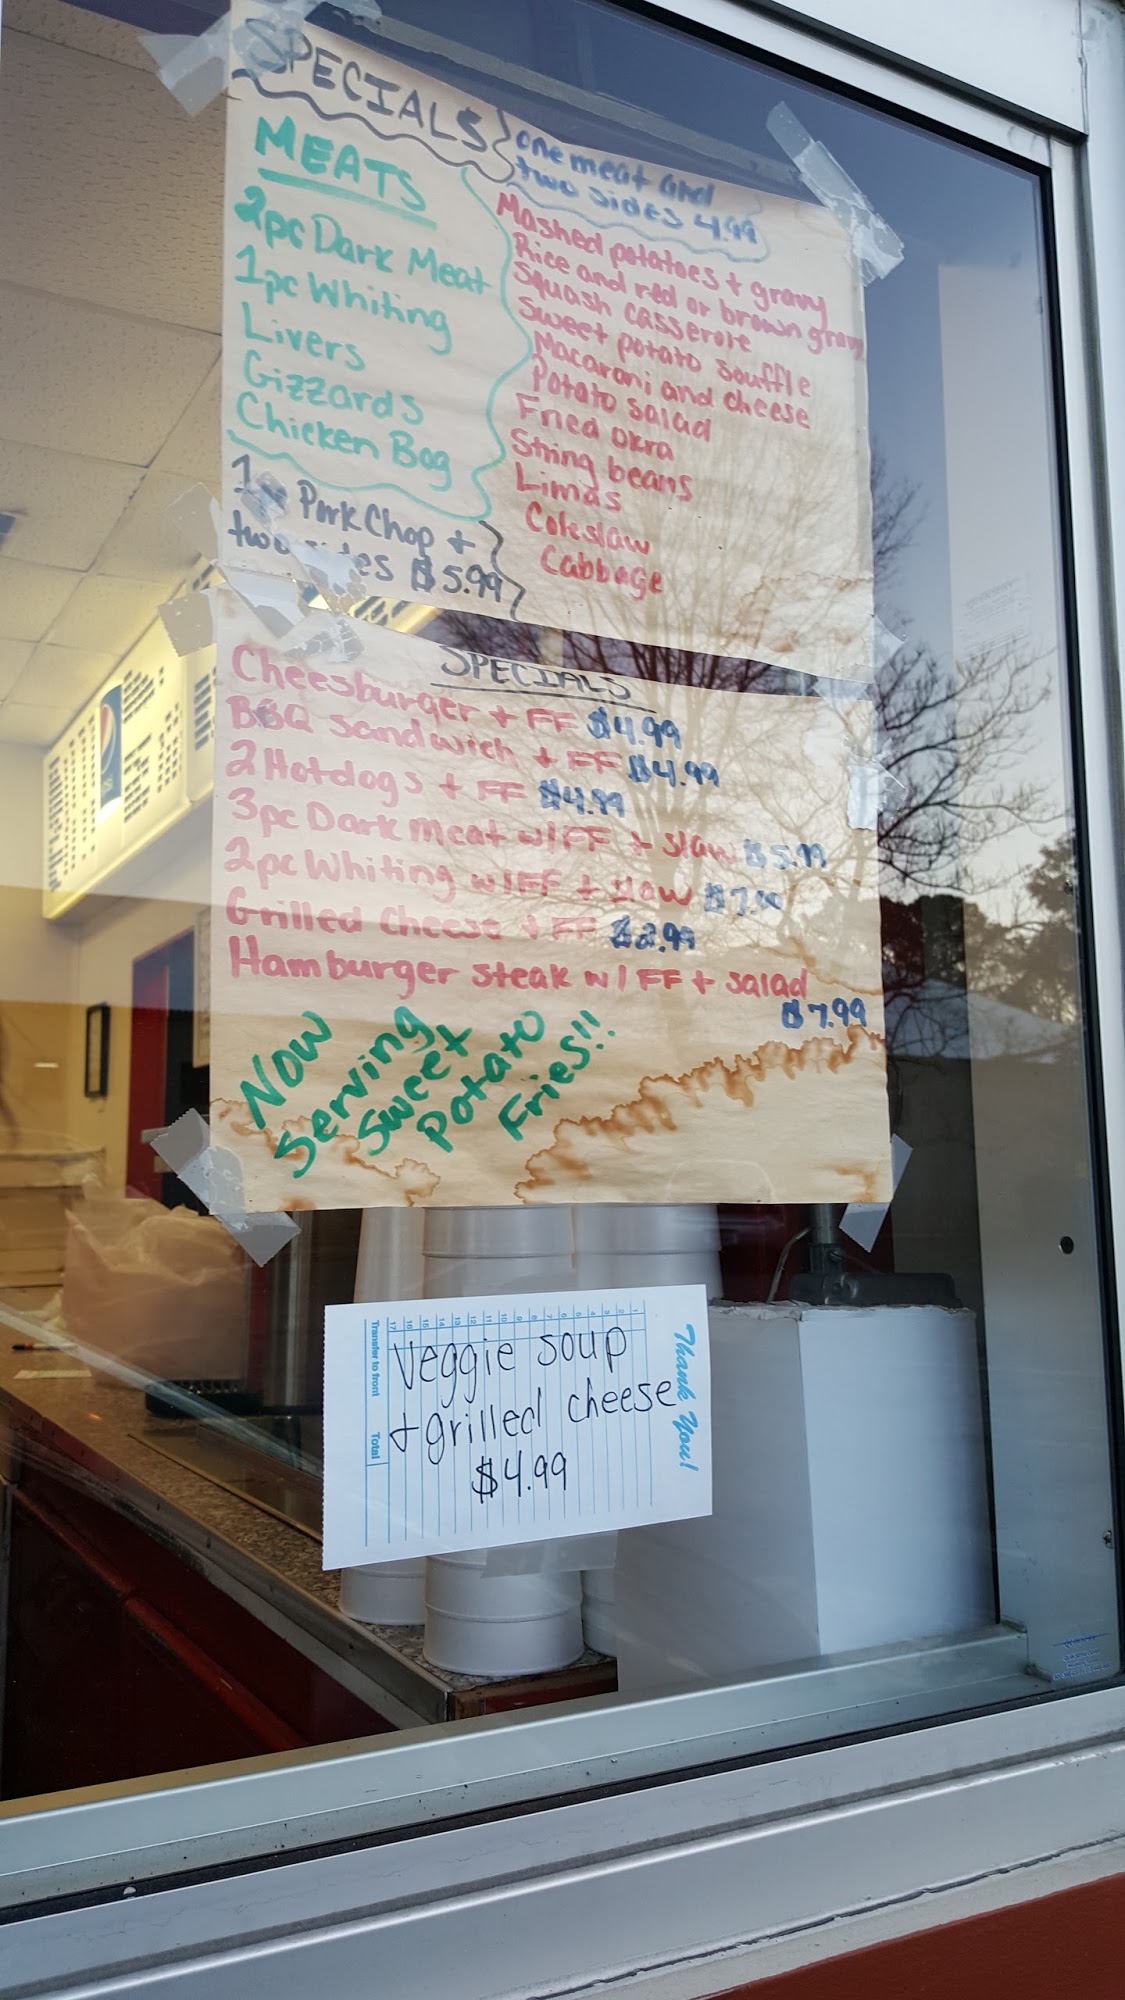 SPECIALS
one meat and
two sides 4.99
MEATS
2pc Dark Meat
1pc Whiting
Livers
Gizzards
Chicken Bog
Mashed potatoes + gravy
Rice and red or brown gravy
Squash casserole
Sweet potato souffle
Macaroni and cheese
Potato salad
Fried okra
String beans
Limas
Coleslaw
Cabbage
Pork Chop +
two sides $5.99
SPECIALS
Cheesburger + FF $4.99
BBQ sandwich + FF $4.99
2 Hotdogs + FF $4.99
3pc Dark meat w/FF + slaw $5.99
2pc Whiting w/FF + slaw
Grilled cheese + FF $2.99
Hamburger steak w/ FF + salad
$7.99
Now
Serving
Sweet
Potato
Fries!!
Veggie soup
+ grilled cheese
$4.99
Thank You!
1 2 3 4 5 6 7 8 9 10 11 12 13 14 15 16 17
Transfer to front Total